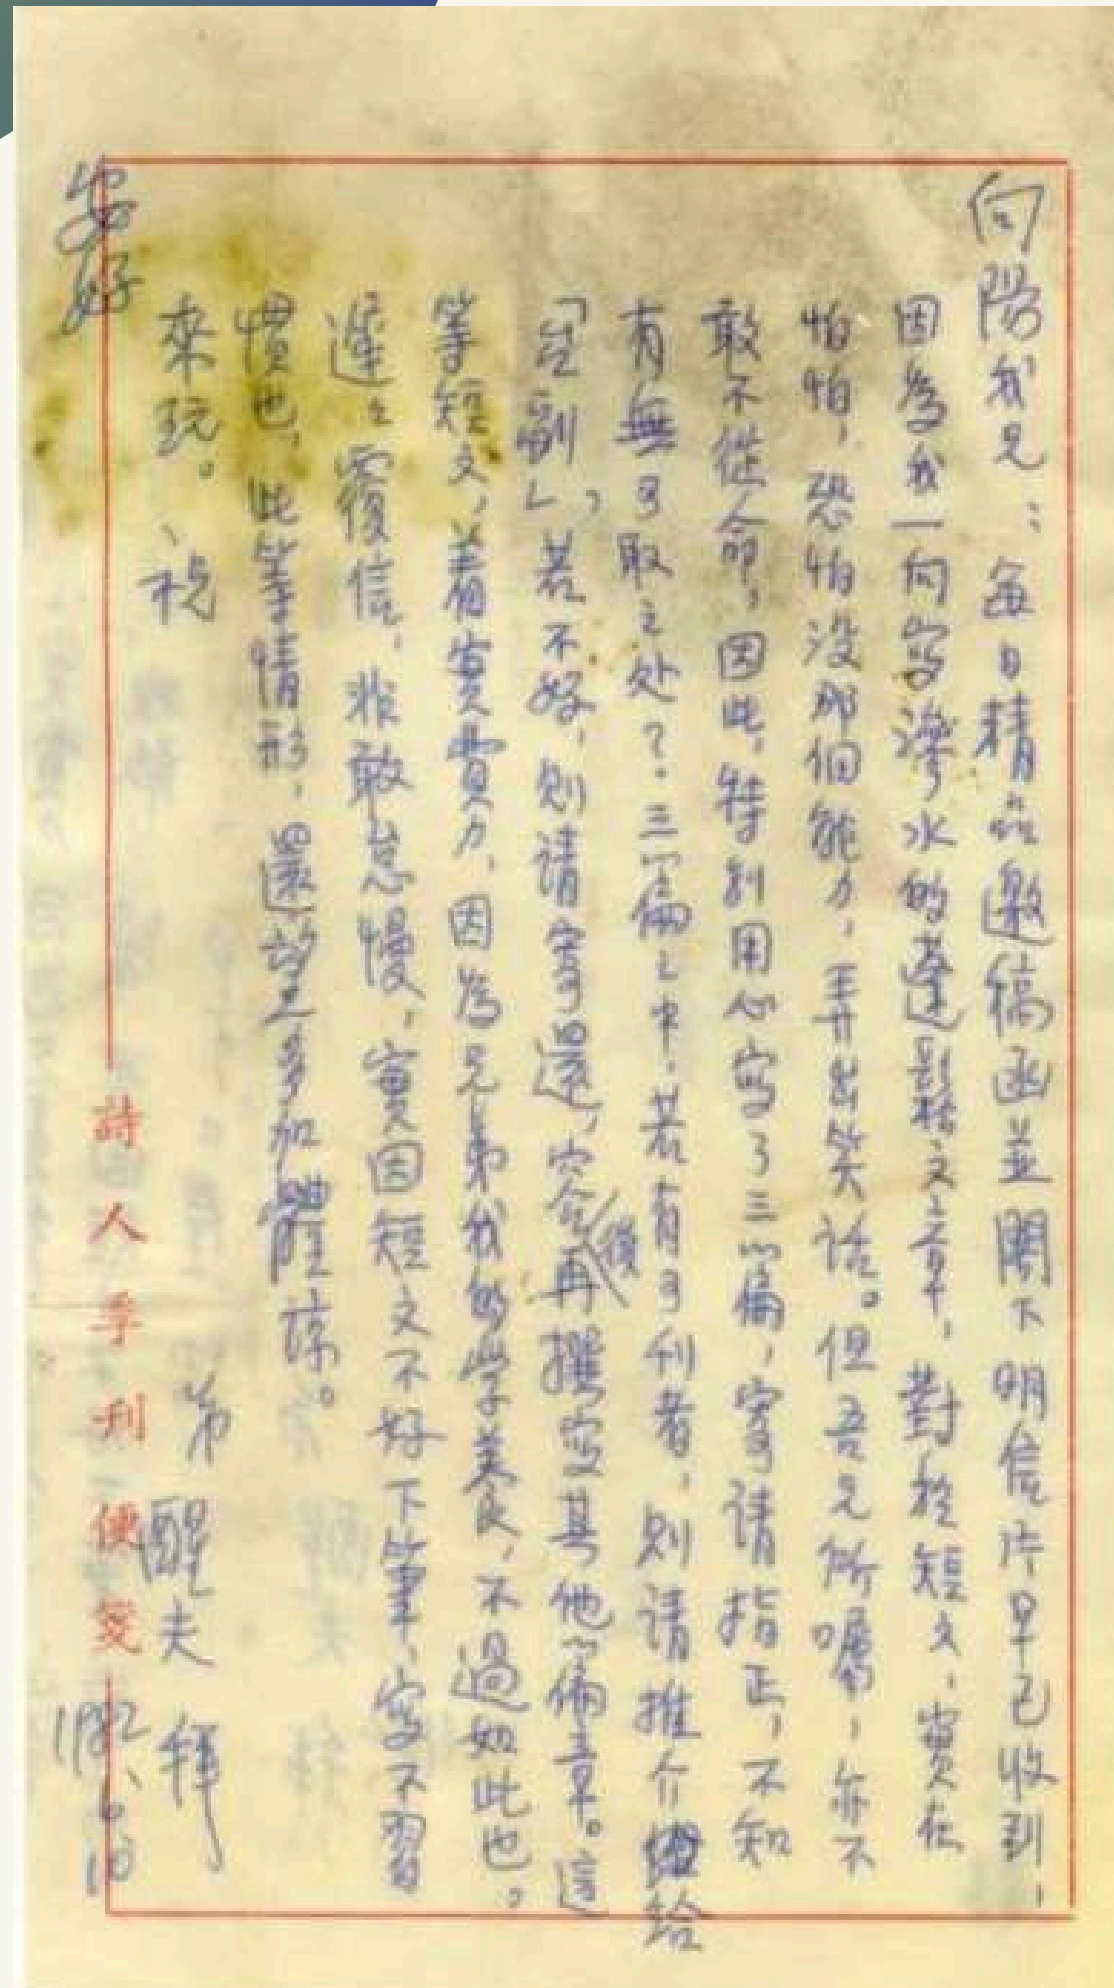 向陽我兄：每日精品邀稿函並閣下明信片早已收到，
因為我一向寫滲水的蓬鬆文章，對於短文，實在
怕怕，恐怕没那個能力，弄出笑話。但吾兄所囑，亦不
敢不從命，因此，特別用心寫了三篇，寄請指正，不知
有無可取之处？三篇之中，若有可刊者，則請推介給
「台副」，若不好，則請寄還，容後再撰寫其他篇章。這
等短文，着實費力，因為兄弟我的学养，不過如此也。
遲之覆信，非敢怠慢，實因短文不好下筆，寫不習
慣也，此等情形，還望多加體諒。
來玩。祝
安好
弟 醒夫 拜
1982、6、10
詩人季刊便箋